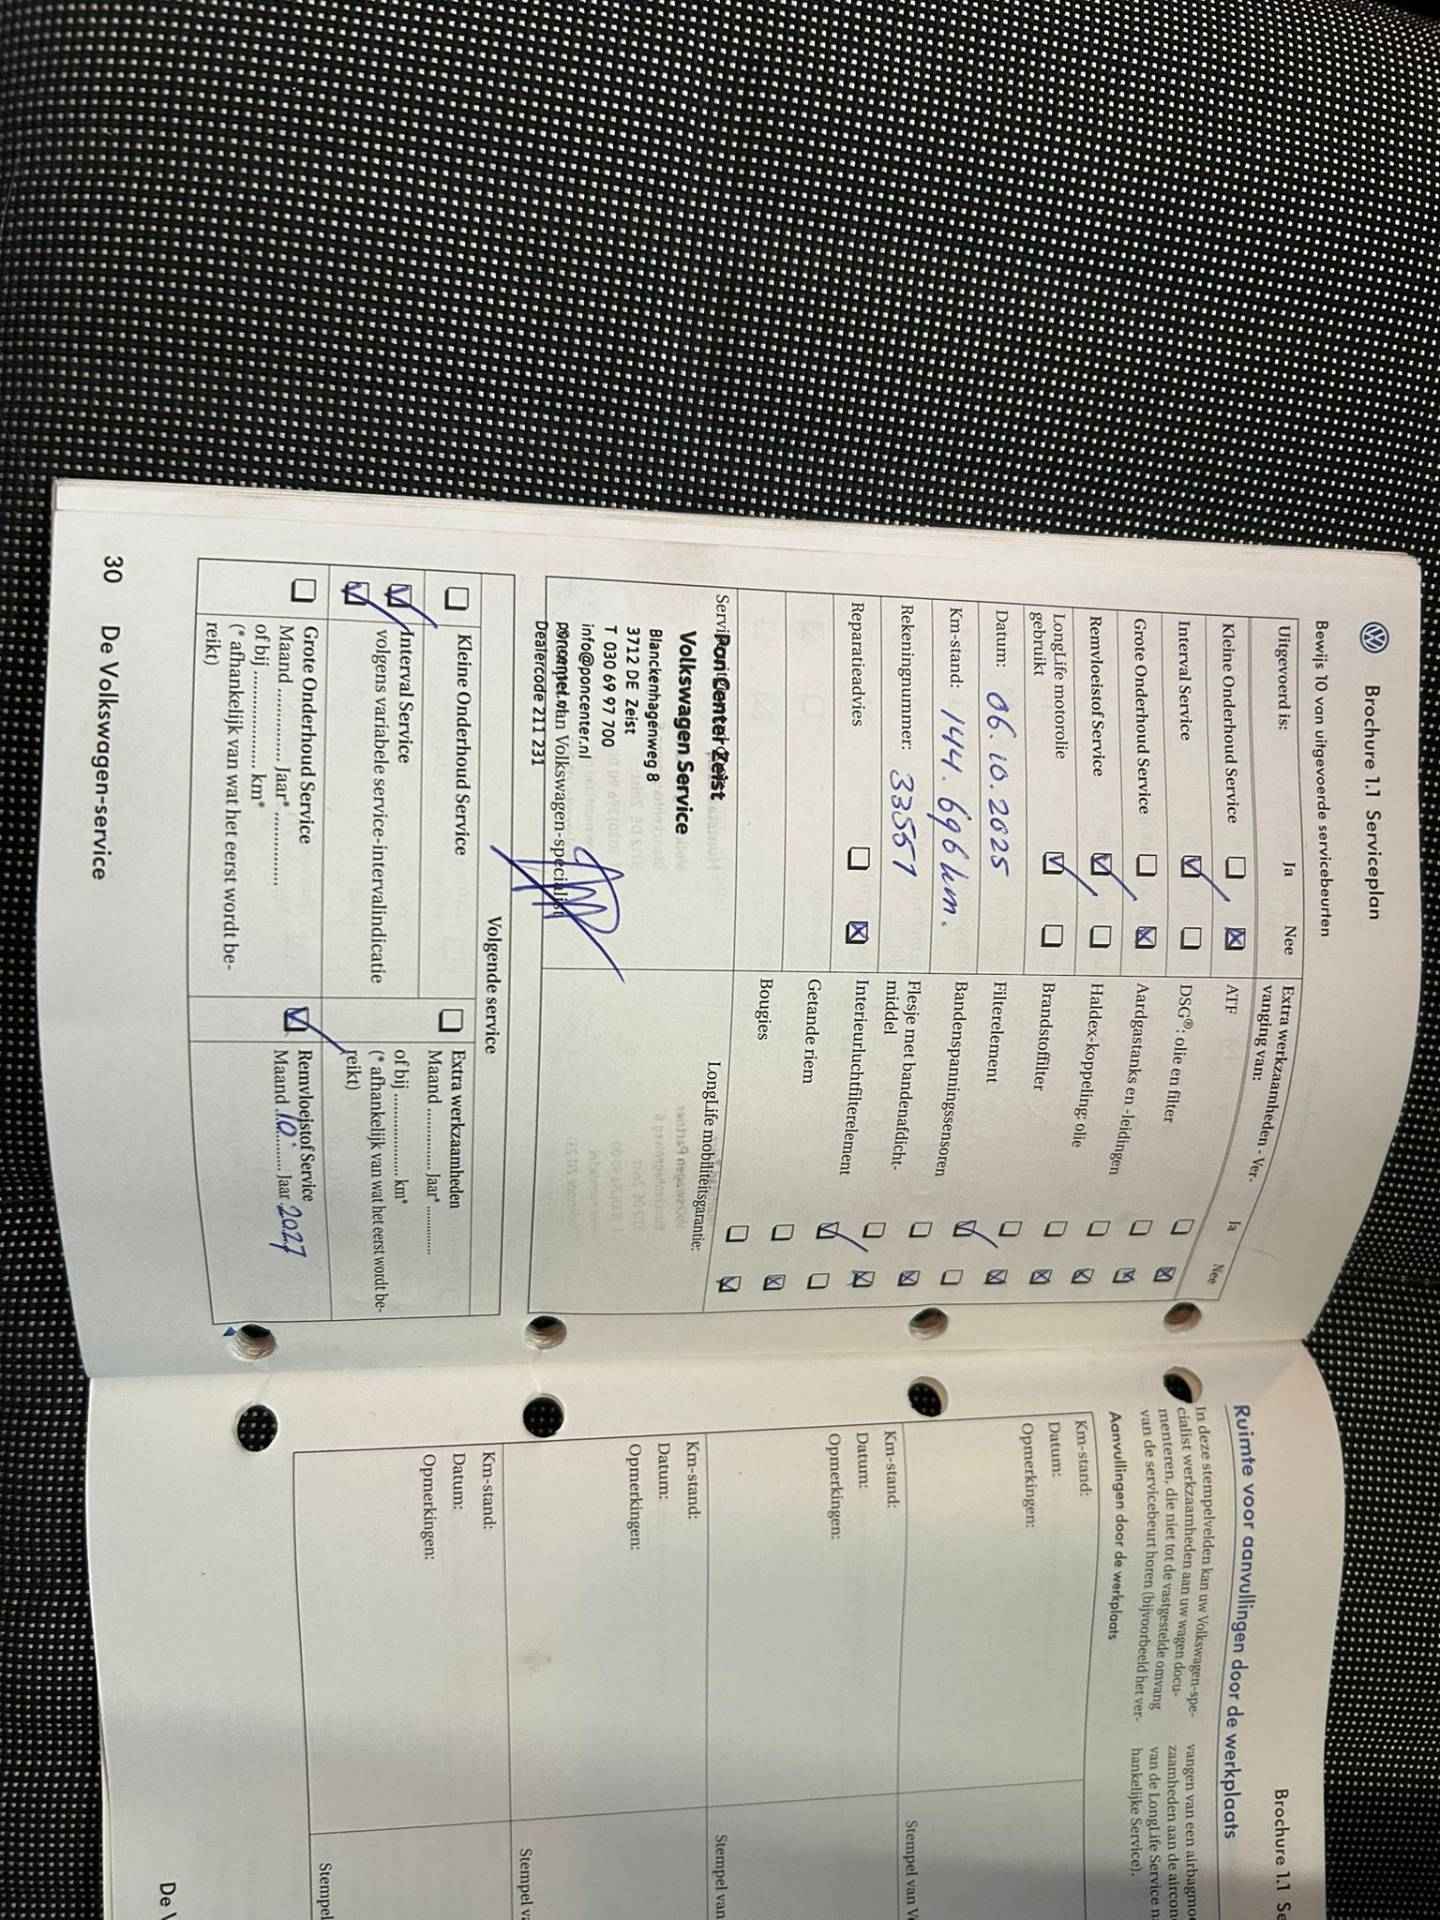 Brochure 1.1 Serviceplan
Bewijs 10 van uitgevoerde servicebeurten
Uitgevoerd is: Ja Nee
Kleine Onderhoud Service
Interval Service
Grote Onderhoud Service
Remvloeistof Service
LongLife motorolie
gebruikt
Datum: 06.10.2025
Km-stand: 144.696 km.
Rekeningnummer: 33557
Reparatieadvies
Extra werkzaamheden - Ver-
vanging van: Ja Nee
ATF
DSG®: olie en filter
Aardgastanks en -leidingen
Haldex-koppeling: olie
Brandstoffilter
Filterelement
Bandenspanningssensoren
Flesje met bandenafdicht-
middel
Interieurluchtfilterelement
Getande riem
Bougies
LongLife mobiliteitsgarantie:
Pon Center Zeist
Volkswagen Service
Blanckenhagenweg 8
3712 DE Zeist
T 030 69 97 700
info@poncenter.nl
poncenter.nl
Stempel van Volkswagen-specialist
Dealercode 211 231
Volgende service
Kleine Onderhoud Service
Interval Service
volgens variabele service-intervalindicatie
Grote Onderhoud Service
Maand ............. Jaar* ...............
of bij .................. km*
(* afhankelijk van wat het eerst wordt be-
reikt)
Extra werkzaamheden
Maand ............. Jaar* .............
of bij .................. km*
(* afhankelijk van wat het eerst wordt be-
reikt)
Remvloeistof Service
Maand 10. Jaar 2027
30 De Volkswagen-service
Brochure 1.1 Se
Ruimte voor aanvullingen door de werkplaats
In deze stempelvelden kan uw Volkswagen-spe-
cialist werkzaamheden aan uw wagen docu-
menteren, die niet tot de vastgestelde omvang
van de servicebeurt horen (bijvoorbeeld het ver-
vangen van een airbagmo
zaamheden aan de aircon
van de LongLife Service n
hankelijke Service).
Aanvullingen door de werkplaats
Km-stand:
Datum:
Opmerkingen:
Stempel van V
Km-stand:
Datum:
Opmerkingen:
Stempel van
Km-stand:
Datum:
Opmerkingen:
Stempel va
Km-stand:
Datum:
Opmerkingen:
Stempel
De V